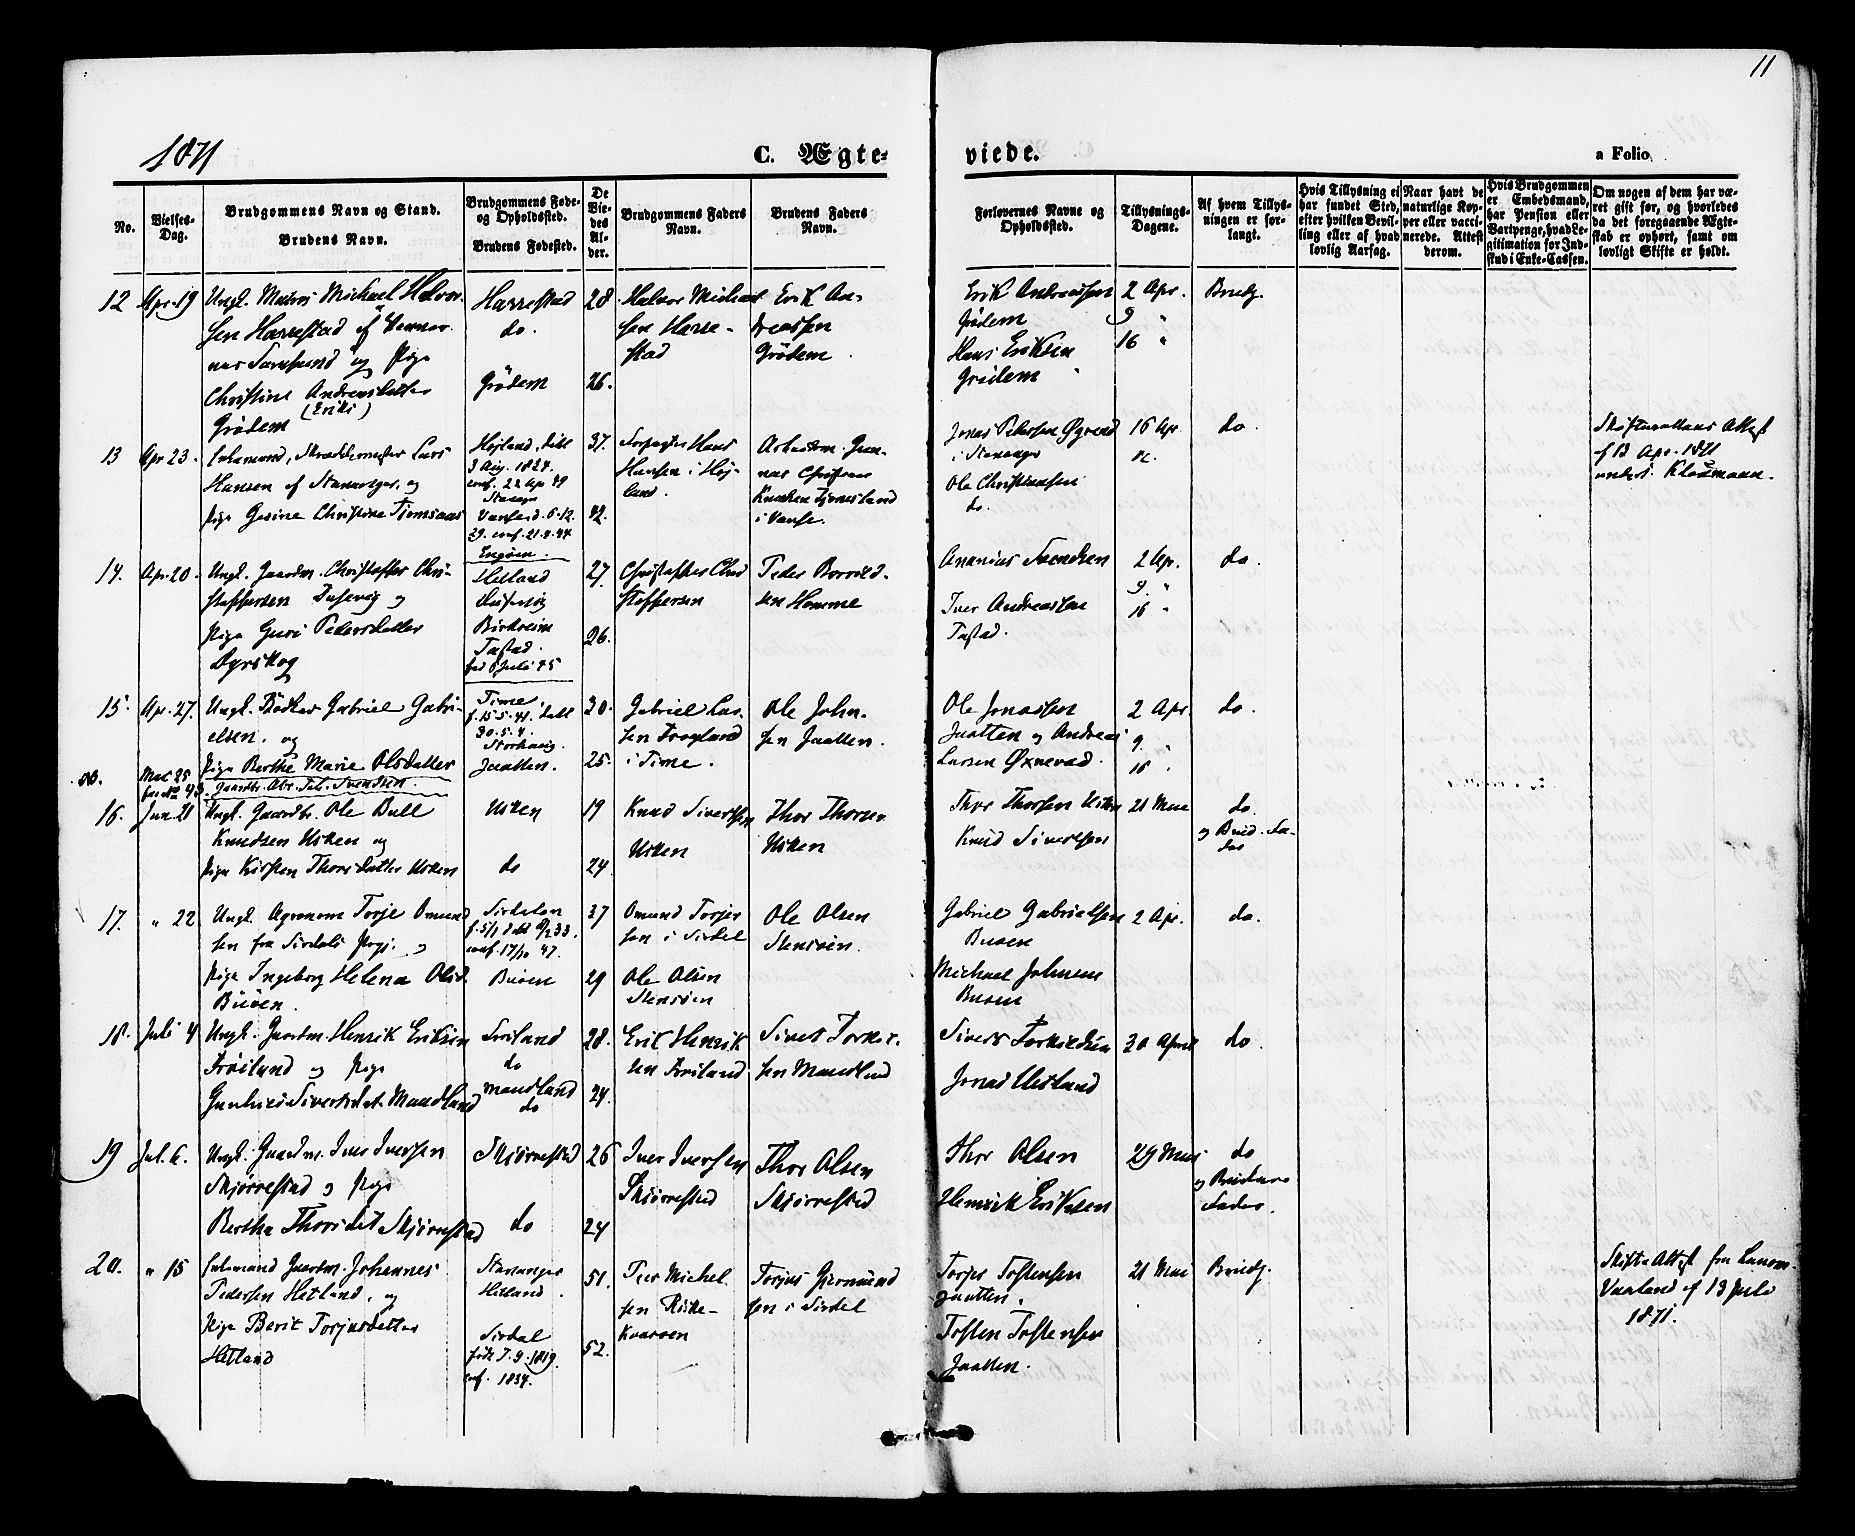 11
1871
C. Ægte-
viede.
a Folio
No.
Vielses-
Dag.
Brudgommens Navn og Stand.
Brudens Navn.
Brudgommens Føde-
og Opholdssted.
Brudens Fødested.
De
Vie-
des
Al-
der.
Brudgommens Faders
Navn.
Brudens Faders
Navn.
Forlovernes Navne og
Opholdssted.
Tillysnings-
Dagene.
Af hvem Tillys-
ningen er for-
langt.
Hvis Tillysning ei
har fundet Sted,
efter hvilken Bevil-
ling eller af hvad
lovlig Aarsag.
Naar havt de
naturlige Kop-
per eller vacci-
nerede. Attest
derom.
Hvis Brudgommen
er Embedsmand,
har Pension eller
Vartpenge, hvad Le-
gitimation for Ind-
skud i Enke-Cassen.
Om nogen af dem har væ-
ret gift før, og hvorledes
da det foregaaende Ægte-
skab er ophørt, samt om
lovligt Skifte er holdt.
12 Apr. 19 Ungk. Michael Halvor-
sen Harrestad af
og Pige
Christine Andreasdatter
(Eriks)
Grödem
Harrestad
do.
Grödem
28
26.
Halvor Michael
sen Harre-
stad
Erik An-
dreassen
Grödem
Erik Andreassen
Grödem
Hans Eriksen
Grödem
2 Apr.
9 "
16 "
Brudg.
13 Apr 23. Enkemand, Skræddermester Lars
Hansen af Stavanger, og
Pige Gesine Christine
Højland, døbt
3 Aug. 1824.
conf. 22 Apr 49
Stavanger
29. conf. 21.4.44
37.
42.
Hans
Hansen i Høj-
land.
Christian
i Vanse.
Jonas Pedersen Øgrend
i Stavanger
Ole Christiansen
do.
16 Ap.
do.
Skifterettens Attest
af 13 Apr. 1871
14. Apr. 20. Ungk. Gaardm. Christoffer Chri-
stoffersen Dusevig og
Pige Guri Pedersdatter
Dyrskog
Engøen.
Hetland
Dusevig
Birkreim
Tastad.
fød 8 Juli 45
27.
26.
Christoffer Chri
stoffersen
Peder
sen Homme
Ananias Svendsen
Iver Andreassen
Tastad.
2 Apr.
9. "
16 "
do
15. Apr. 27. Ungk. Gabriel Gabri-
elsen. og
Pige Berthe Marie Olsdatter
Time,
f. 15.5.41. døbt
30.5.4.
Jaatten.
30.
25.
Gabriel Lar-
sen Frøyland
i Time.
Ole John-
sen Jaatten.
Ole Jonassen
Jaatten og Andreas
Larsen Øxnevad.
2 Apr.
9. "
16 ".
do.
Mai 25
Svendsen
16. Jun. 21 Ungk. Gaardbr. Ole Bull
Knudsen Usken og
Pige Kirsten Thorsdatter Usken
Usken
do
19
24.
Knud Sivertsen
Usken
Thor Thorsen
Usken
Thor Thorsen Usken
Knud Sivertsen
21 Mai
do.
og Brud. Fa-
der
17. " 22 Ungk. Agronom Torje Omund
sen fra Sirdals Prgj. og
Pige Ingeborg Helena Olsd.
Buöen.
Sirdalen
Buöen
37
29
Omund Torjer
sen i Sirdal
Ole Olsen
Stensöen
Ole Olsen
Stensöen.
Gabriel Gabrielsen
Buöen
Michael Johnsen
Buöen
2 Apr.
do.
18. Juli 4 Ungk. Gaardm. Henrik Eriksen
Fröiland og Pige
Gunhild Sivertsdat. Maudland
Fröiland
do
Maudland
do
28.
24.
Erik Henrik
sen Fröiland
Sivert Torkel-
sen Maudland
Sivert Torkildsen
Jonas
30 April
do.
19 Jul. 6. Ungk. Gaardm. Iver Iversen
Skjörrestad og Pige
Bertha Thorsdat. Skjörrestad
Skjörrestad
do
26
24
Iver Iversen
Skjörrestad
Thor Olsen
Skjörrestad
Thor Olsen
Henrik Eriksen
29 Mai
do
og Brudens
Fader.
20. " 15 Enkemand Gaardm. Johannes
Pedersen Hetland, og
Pige Berit Torjusdatter
Hetland
Stavanger
Hetland.
Sirdal
født 7.9.1819.
conf. 1834.
51.
52.
Peer Michel
sen Riske-
Kvarven
Torjus Gjermund
sen i Sirdal
Torger Tostensen
Jaatten.
Tosten Tostensen
Jaatten.
21 Mai
Brudg.
Skifte Attest fra Lensm.
Vaaland af 13 Juli
1871.